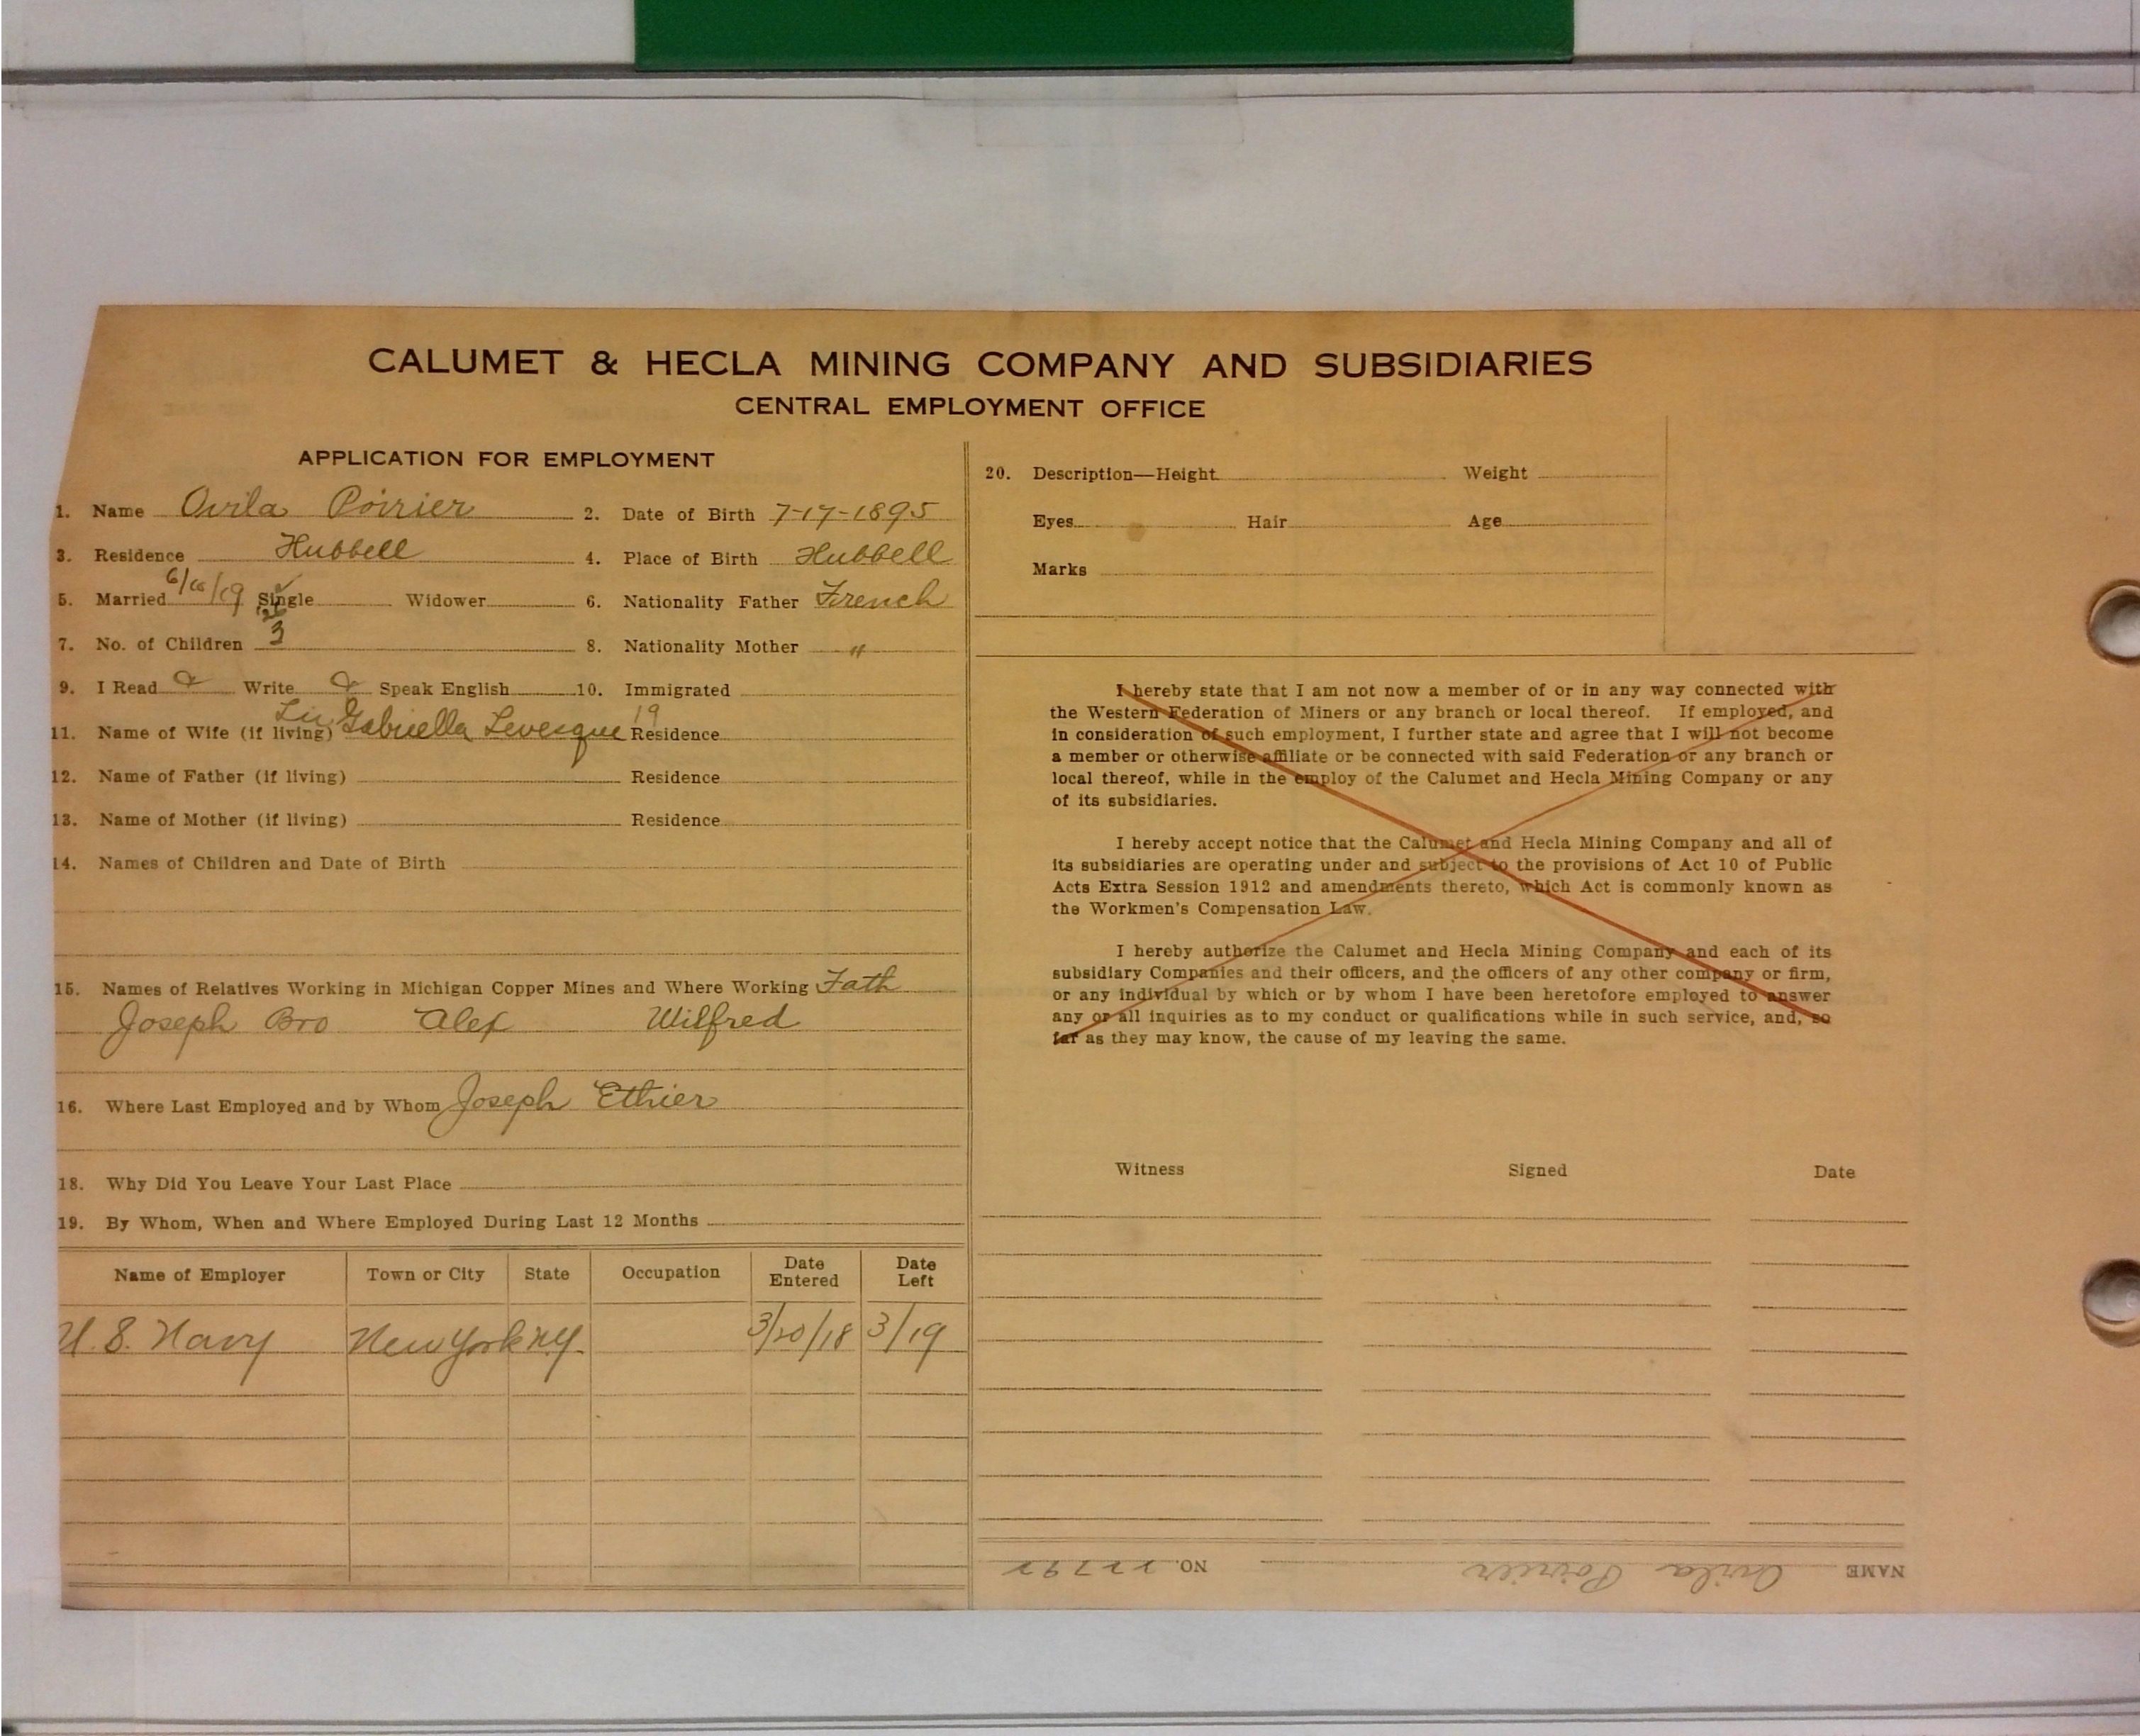 CALUMET & HECLA MINING COMPANY AND SUBSIDIARIES
CENTRAL EMPLOYMENT OFFICE
APPLICATION FOR EMPLOYMENT
1. Name Ovila Poirier 2. Date of Birth 7-17-1895
3. Residence Hubbell 4. Place of Birth Hubbell
5. Married Single Widower 6. Nationality Father French
7. No. of Children 3 8. Nationality Mother "
9. I Read Write Speak English 10. Immigrated
11. Name of Wife (if living) Gabriella Levesque Residence 19
12. Name of Father (if living) Residence
13. Name of Mother (if living) Residence
14. Names of Children and Date of Birth
15. Names of Relatives Working in Michigan Copper Mines and Where Working Fath
Joseph Bro Alex Wilfred
16. Where Last Employed and by Whom Joseph Ethier
18. Why Did You Leave Your Last Place
19. By Whom, When and Where Employed During Last 12 Months
Name of Employer Town or City State Occupation Date Entered Date Left
U.S. Navy New York N.Y. 3/20/18 3/19
20. Description—Height Weight
Eyes Hair Age
Marks
I hereby state that I am not now a member of or in any way connected with
the Western Federation of Miners or any branch or local thereof. If employed, and
in consideration of such employment, I further state and agree that I will not become
a member or otherwise affiliate or be connected with said Federation or any branch or
local thereof, while in the employ of the Calumet and Hecla Mining Company or any
of its subsidiaries.
I hereby accept notice that the Calumet and Hecla Mining Company and all of
its subsidiaries are operating under and subject to the provisions of Act 10 of Public
Acts Extra Session 1912 and amendments thereto, which Act is commonly known as
the Workmen's Compensation Law.
I hereby authorize the Calumet and Hecla Mining Company and each of its
subsidiary Companies and their officers, and the officers of any other company or firm,
or any individual by which or by whom I have been heretofore employed to answer
any or all inquiries as to my conduct or qualifications while in such service, and, so
far as they may know, the cause of my leaving the same.
Witness Signed Date
NAME Ovila Poirier NO.